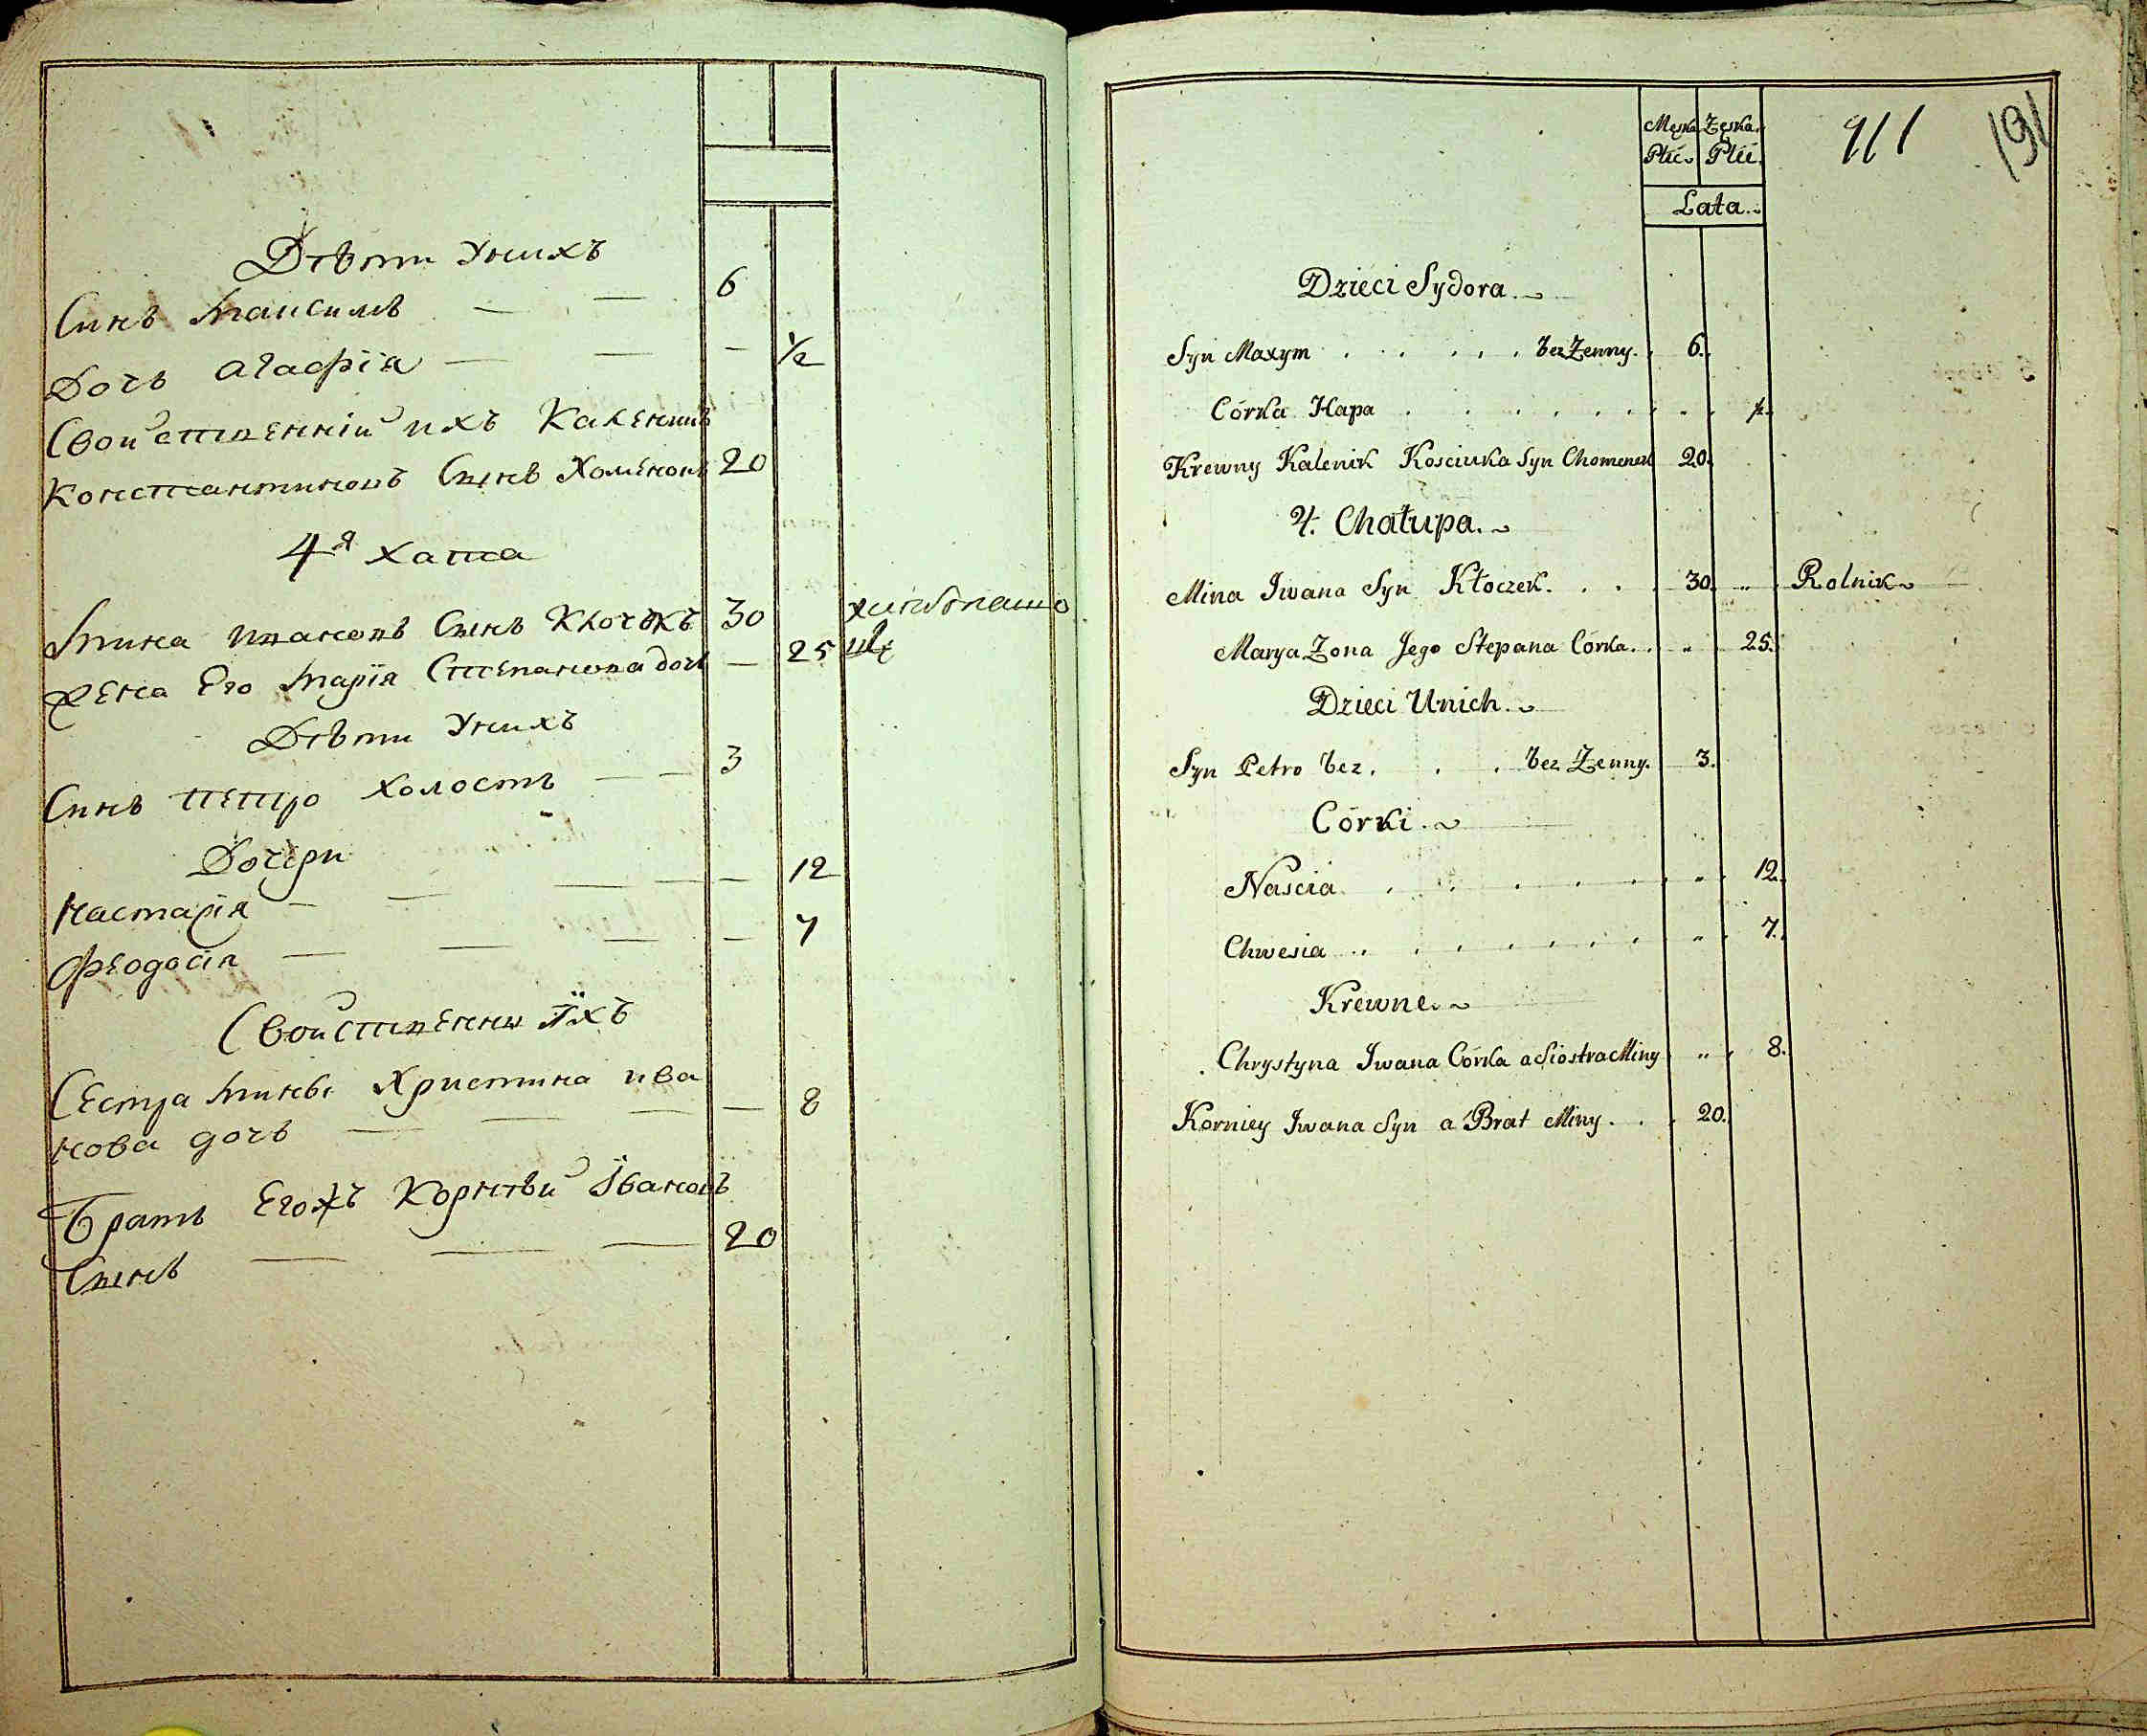 Дѣти Унихъ
Синъ Максимъ — — 6
Дочь Агафія — — — ½
Свойственній ихъ Каленикъ
Константиновъ Сынъ Хоменокъ 20
4я хата
Мина Ивановъ Сынъ Клочекъ 30
Жена Его Марія Степанова дочь — 25
Дѣти Унихъ
Синъ Петро Холостъ — — 3
Дочери
Настасія — — — — — 12
Феодосія — — — — 7
Свойственни Їхъ
Сестра Мины Христина ива
нова дочь — — — — 8
Братъ Егожъ Корнѣй Ївановъ
Сынъ — — — 20
Męska Żęska 911 191
Płći Płći
Lata
Dzieci Sydora
Syn Maxym . . . . . bez Zenny. 6.
Córka Hapa . . . . . . . „ . ½.
Krewny Kalenik Kosciuka Syn Chomenek 20.
4. Chałupa.
Mina Jwana Syn Kłoczek. . . . 30. „ . Rolnik
Marya Zona Jego Stepana Córka. . „ . 25.
Dzieci Unich.
Syn Petro bez. . . bez Zenny. 3.
Córki.
Nascia . . . . . . „ . 12.
Chwesia . . . . . . . „ . 7.
Krewne.
Chrystyna Jwana Córka a Siostra Miny „ . 8.
Korniey Jwana Syn a Brat Miny. . . 20.